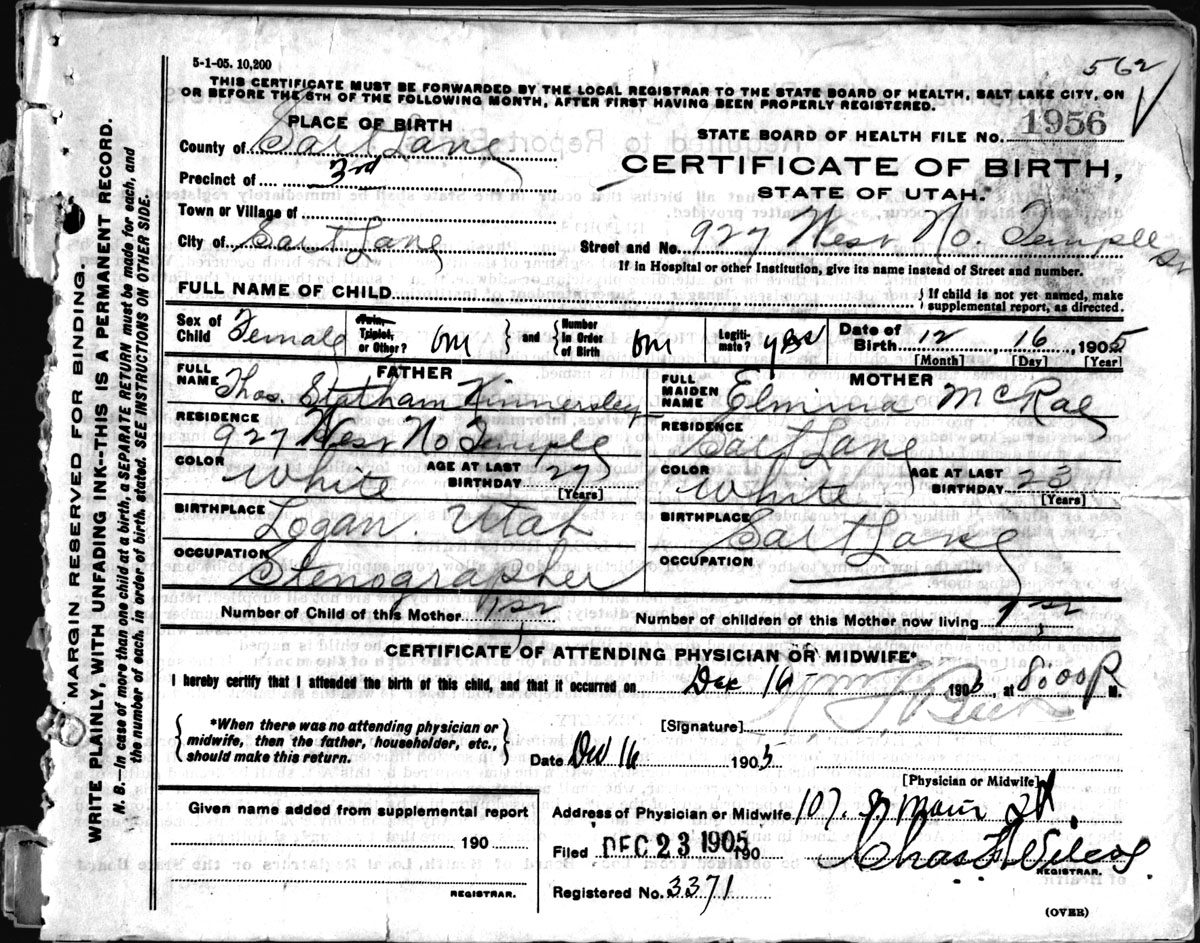 5-1-05. 10,200
562
THIS CERTIFICATE MUST BE FORWARDED BY THE LOCAL REGISTRAR TO THE STATE BOARD OF HEALTH, SALT LAKE CITY, ON
OR BEFORE THE 5TH OF THE FOLLOWING MONTH, AFTER FIRST HAVING BEEN PROPERLY REGISTERED.
PLACE OF BIRTH
STATE BOARD OF HEALTH FILE No. 1956
County of Salt Lake
CERTIFICATE OF BIRTH,
Precinct of 3rd
STATE OF UTAH.
Town or Village of
City of Salt Lake
Street and No. 927 West No. Temple St
If in Hospital or other Institution, give its name instead of Street and number.
FULL NAME OF CHILD
{ If child is not yet named, make supplemental report, as directed.
Sex of Child Female
Twin, Triplet, or Other? One } and { Number in Order of Birth One
Legitimate? yes
Date of Birth 12 16 1905
[Month] [Day] [Year]
FATHER
FULL NAME Thos. Statham Kinnersley
RESIDENCE 927 West No Temple
COLOR White
AGE AT LAST BIRTHDAY 27 [Years]
BIRTHPLACE Logan. Utah
OCCUPATION Stenographer
MOTHER
FULL MAIDEN NAME Elmina McRae
RESIDENCE Salt Lake
COLOR White
AGE AT LAST BIRTHDAY 23 [Years]
BIRTHPLACE Salt Lake
OCCUPATION
Number of Child of this Mother 1st
Number of children of this Mother now living 1st
CERTIFICATE OF ATTENDING PHYSICIAN OR MIDWIFE*
I hereby certify that I attended the birth of this child, and that it occurred on Dec 16 1905, at 8:00 P M.
{ *When there was no attending physician or midwife, then the father, householder, etc., should make this return. }
[Signature] Beer
Date Dec 16 1905
[Physician or Midwife]
Given name added from supplemental report
190
REGISTRAR.
Address of Physician or Midwife 107. S Main St.
Filed DEC 23 1905 190
REGISTRAR.
Registered No. 3371
(OVER)
MARGIN RESERVED FOR BINDING.
WRITE PLAINLY, WITH UNFADING INK--THIS IS A PERMANENT RECORD.
N. B.—In case of more than one child at a birth, a SEPARATE RETURN must be made for each, and
the number of each, in order of birth, stated. SEE INSTRUCTIONS ON OTHER SIDE.